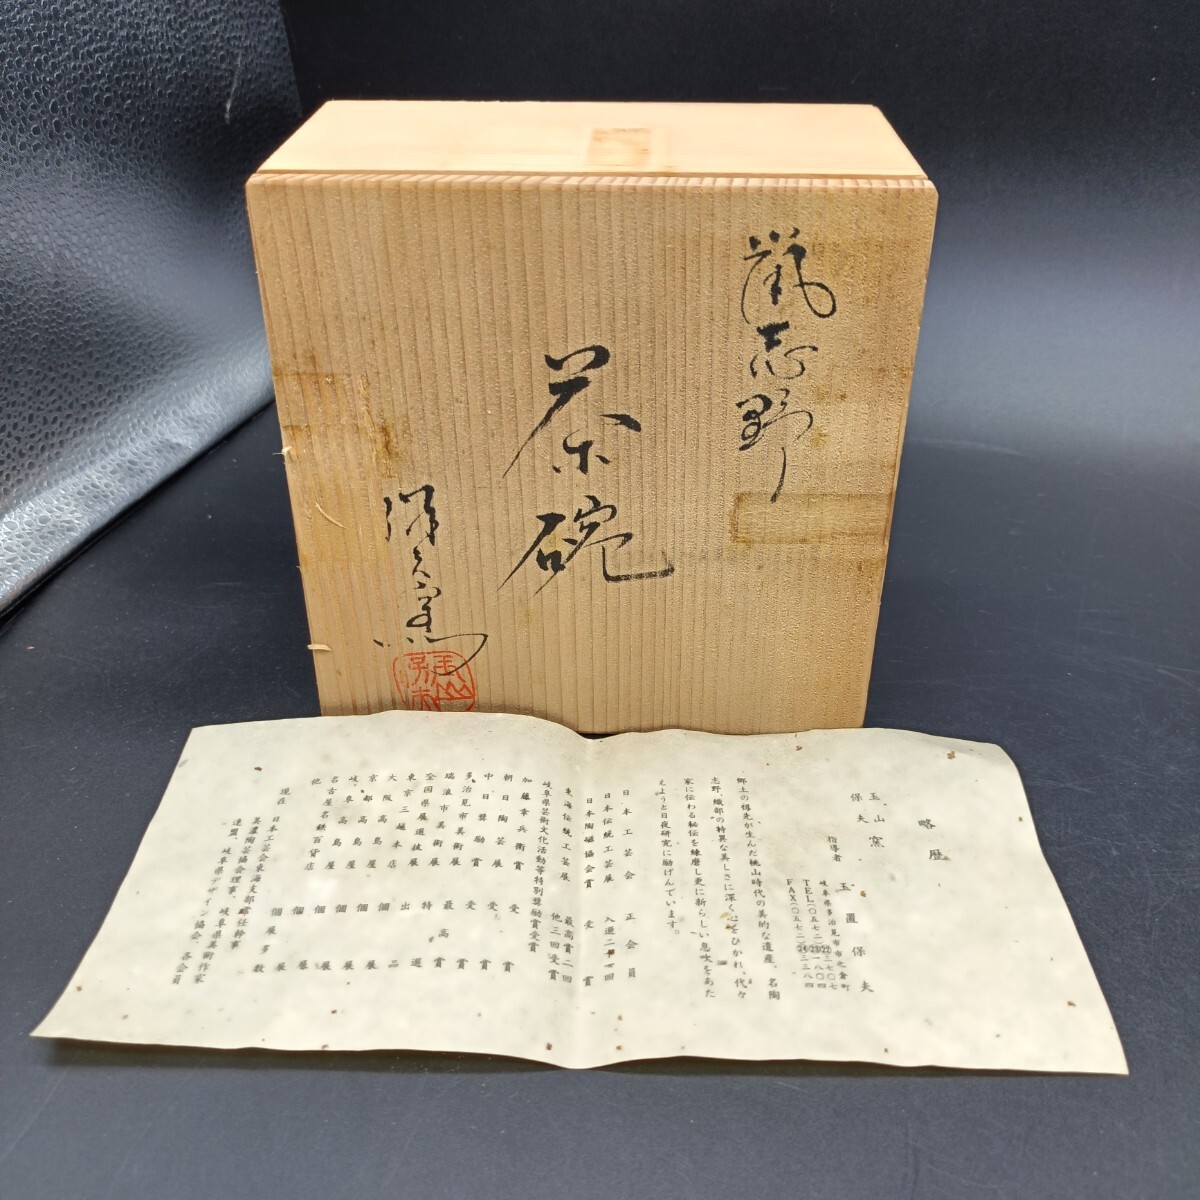 鼠志野
茶碗
略歴
玉山窯 玉置保夫
保夫
指導者
岐阜県多治見市市之倉町
TEL(〇五七二
FAX(〇五七二
郷土の祖先が生んだ桃山時代の美的な遺産、名陶
志野、織部の特異な美しさに深く心をひかれ、代々
家に伝わる秘伝を練磨し更に新らしい息吹をあた
えようと日夜研究に励げんでいます。
日本工芸会正会員
日本伝統工芸展
日本陶磁協会賞 受賞
東海伝統工芸展 最高賞二回
他三回受賞
岐阜県芸術文化活動等特別奨励賞受賞
加藤幸兵衛賞 受賞
朝日陶芸展 受賞
中日奨励賞 受賞
多治見市美術展 最高賞
瑞浪市美術展 特選
全国県展選抜展
東京三越本店 出品
大阪高島屋 個展
京都高島屋 個展
岐阜高島屋 個展
名古屋名鉄百貨店 個展
他 個展多数
現在 日本工芸会東海支部常任幹事
美濃陶芸協会理事、岐阜県美術作家
連盟、岐阜県デザイン協会、各会員